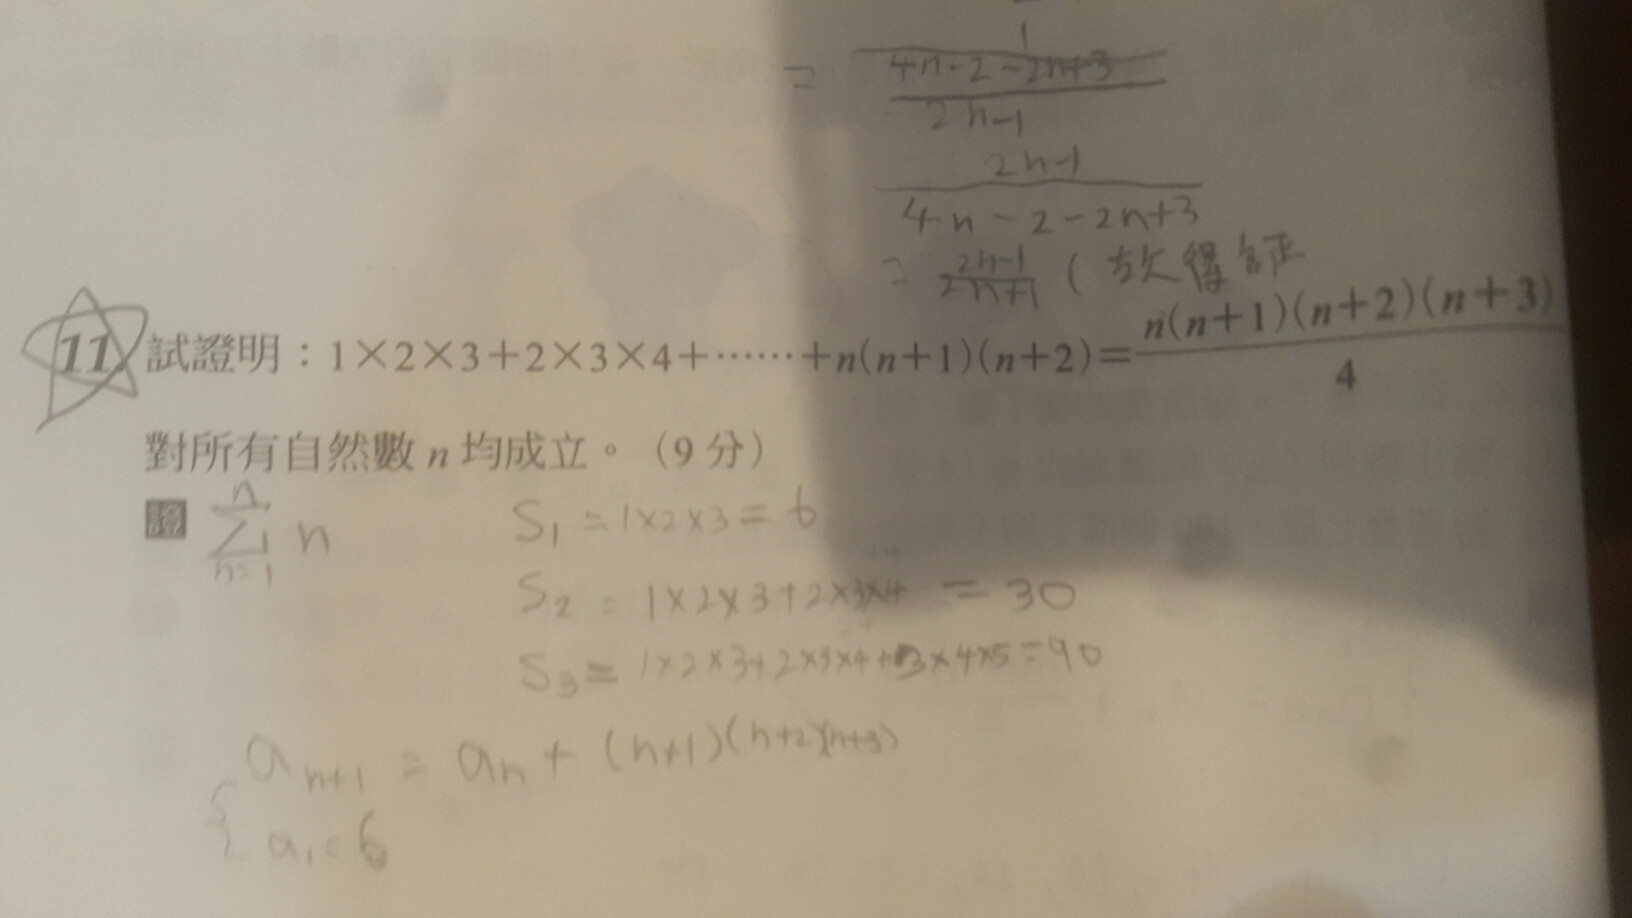 1
= 4n-2-2n+3
2n-1
2n-1
4n-2-2n+3
= 2n-1 / 2n+1 (故得証
11. 試證明：1×2×3+2×3×4+……+n(n+1)(n+2)= n(n+1)(n+2)(n+3) / 4
對所有自然數 n 均成立。（9 分）
證 n ∑ n=1 n S₁ = 1×2×3 = 6
S₂ = 1×2×3+2×3×4 = 30
S₃ = 1×2×3+2×3×4+3×4×5=90
{ aₙ₊₁ = aₙ + (n+1)(n+2)(n+3)
a₁=6